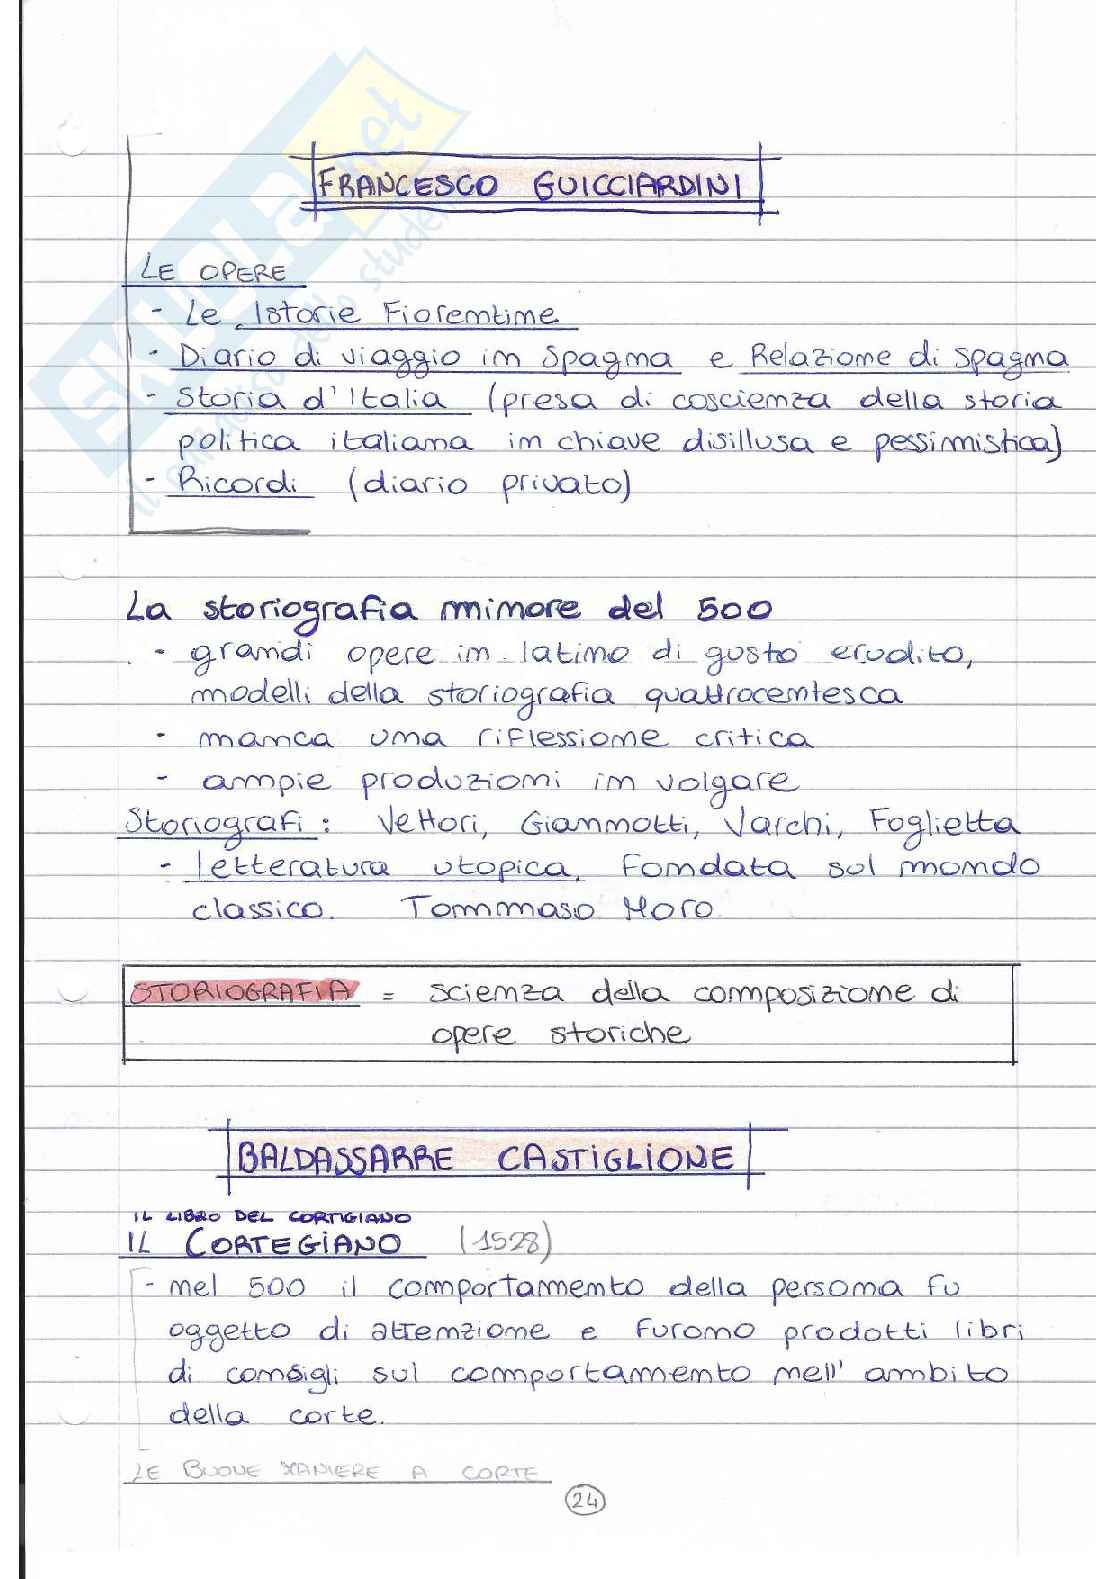 FRANCESCO GUICCIARDINI
LE OPERE
- Le Istorie Fiorentine
- Diario di viaggio in Spagna e Relazione di Spagna
- Storia d'Italia (presa di coscienza della storia
politica italiana in chiave disillusa e pessimistica)
- Ricordi (diario privato)
La storiografia minore del 500
- grandi opere in latino di gusto erudito,
modelli della storiografia quattrocentesca
- manca una riflessione critica
- ampie produzioni in volgare
Storiografi: Vettori, Giannotti, Varchi, Foglietta
- letteratura utopica, fondata sul mondo
classico. Tommaso Moro
STORIOGRAFIA = scienza della composizione di
opere storiche
BALDASSARRE CASTIGLIONE
IL LIBRO DEL CORTIGIANO
IL CORTEGIANO (1528)
- nel 500 il comportamento della persona fu
oggetto di attenzione e furono prodotti libri
di consigli sul comportamento nell'ambito
della corte.
LE BUONE MANIERE A CORTE
24